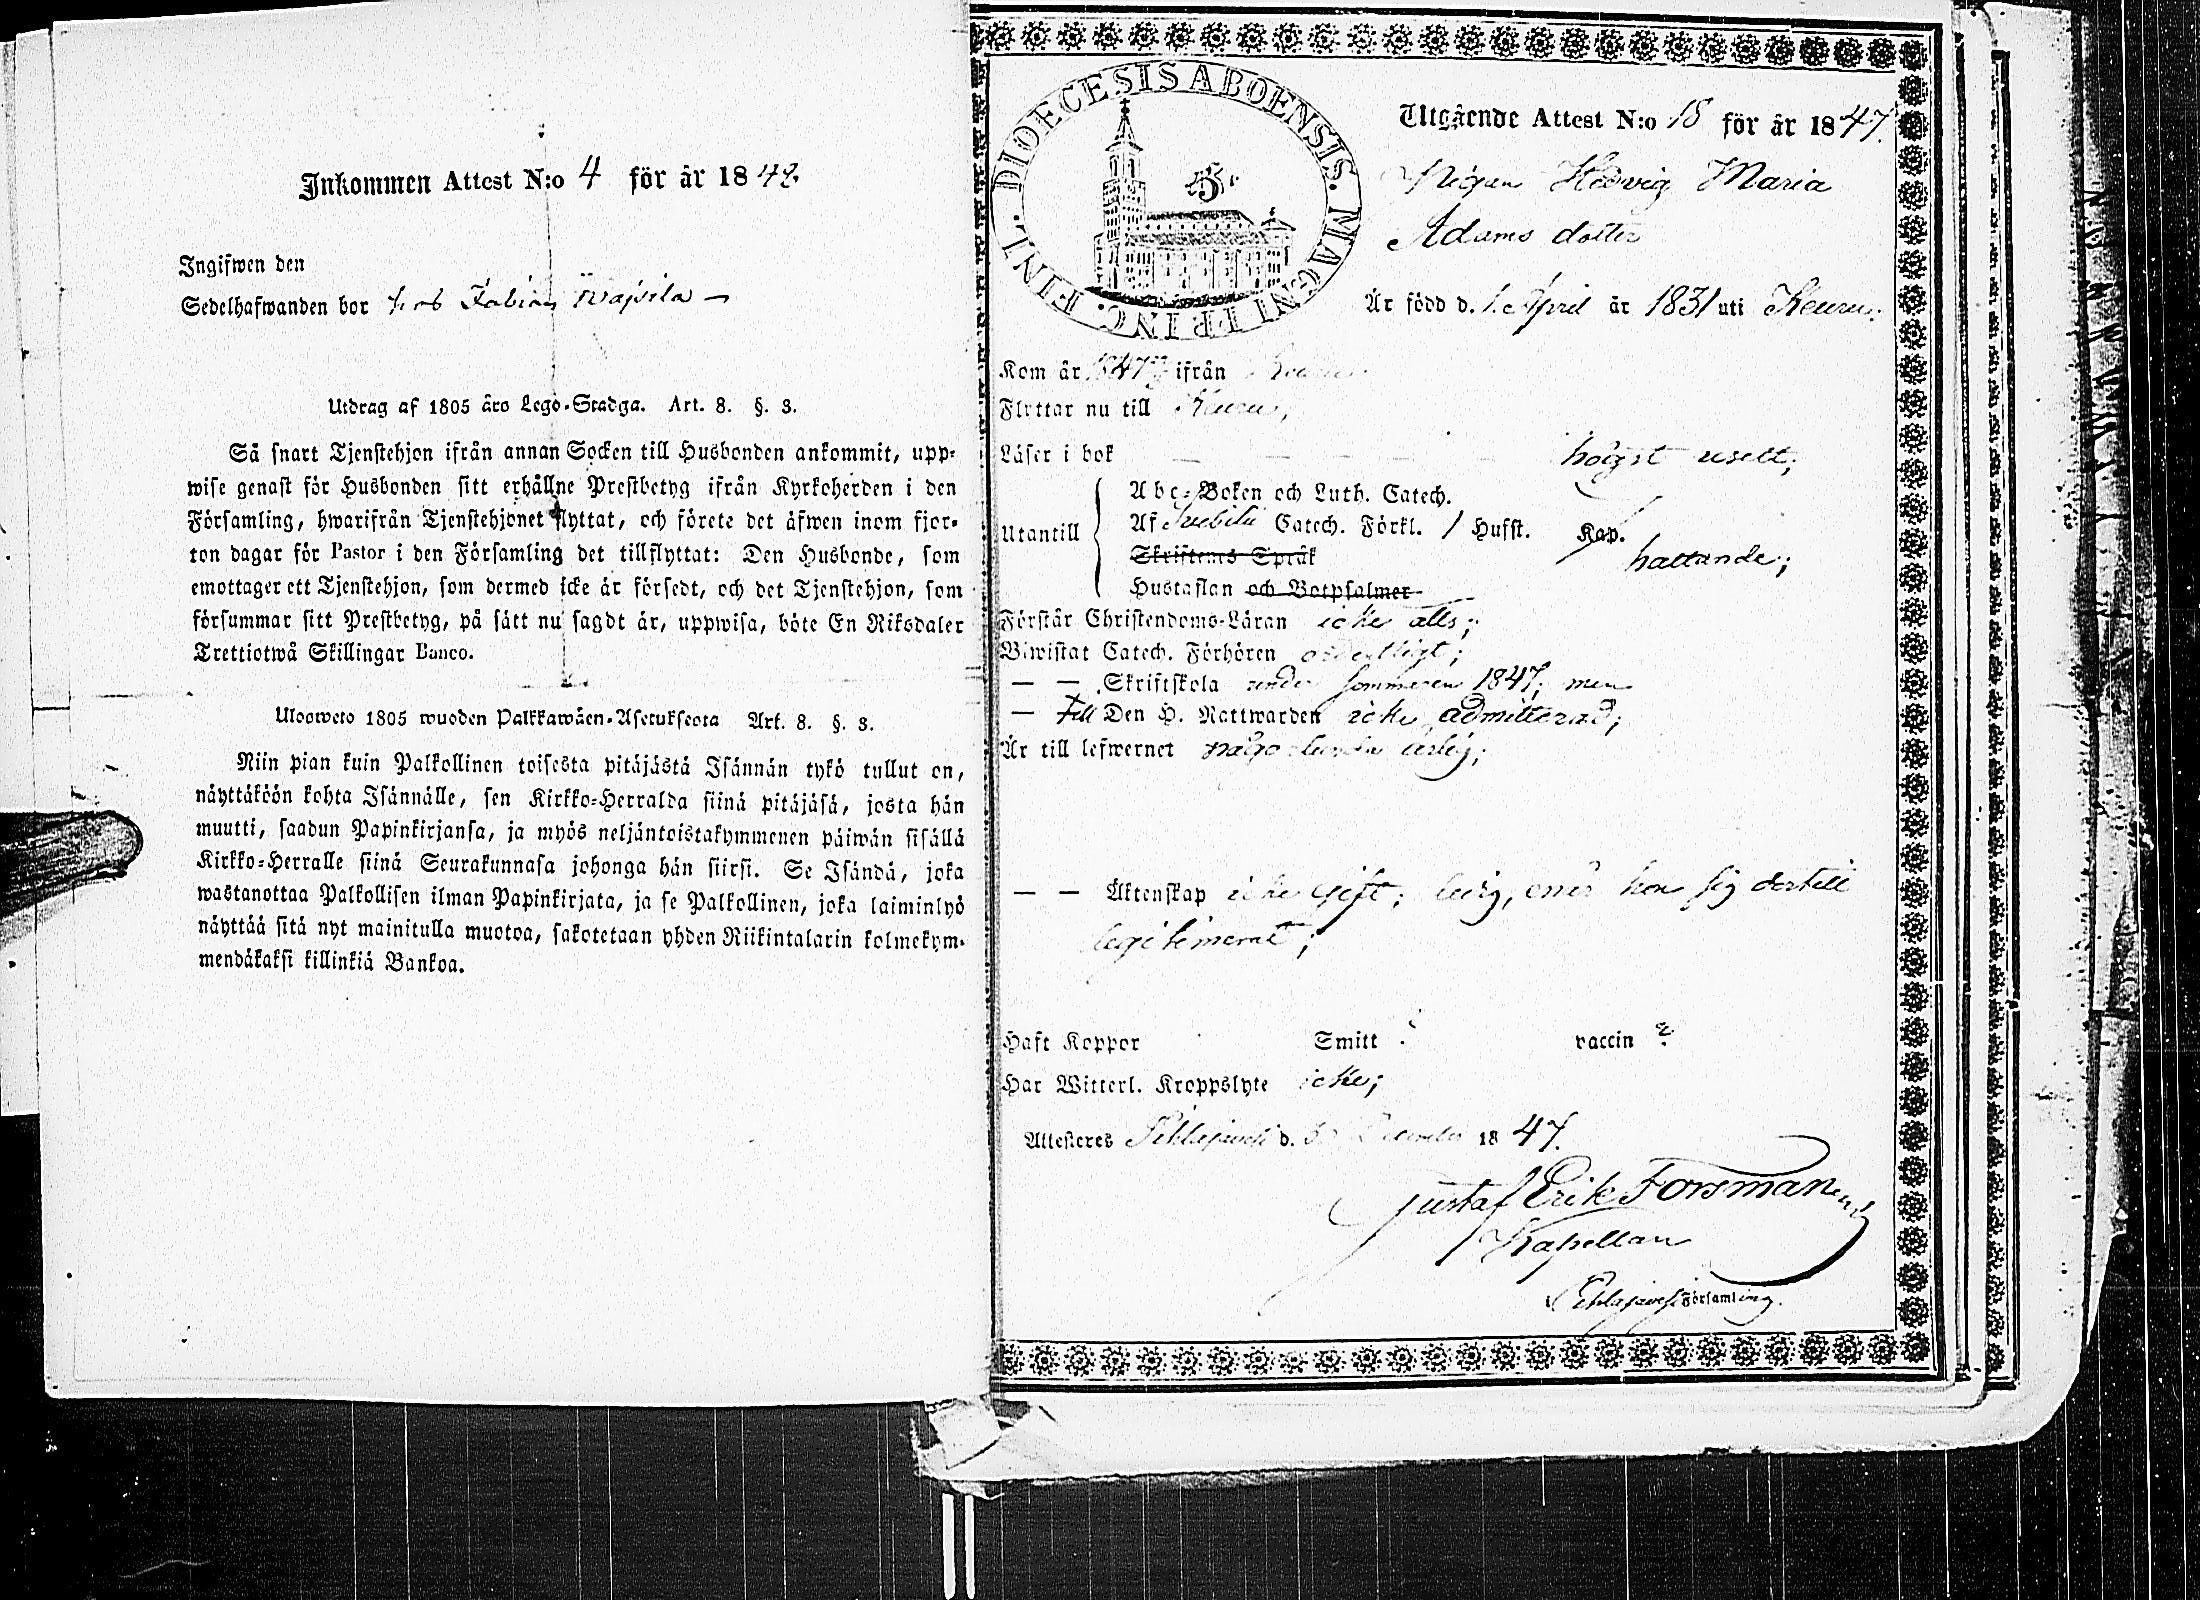 Inkommen Attest N:o 4 för år 1848.
Ingifwen den
Sedelhafwanden bor hos Fabian
Utdrag af 1805 års Lego-Stadga. Art. 8. §. 3.
Så snart Tjenstehjon ifrån annan Socken till Husbonden ankommit, upp-
wise genast för Husbonden sitt erhållne Prestbetyg ifrån Kyrkoherden i den
Församling, hwarifrån Tjenstehjonet flyttat, och förete det äfwen inom fjor-
ton dagar för Pastor i den Församling det tillflyttat: Den Husbonde, som
emottager ett Tjenstehjon, som dermed icke är försedt, och det Tjenstehjon, som
försummar sitt Prestbetyg, på sätt nu sagdt är, uppwisa, böte En Riksdaler
Trettiotwå Skillingar Banco.
Ulosweto 1805 wuoden Palkkawäen-Asetuksesta Art. 8. §. 3.
Niin pian kuin Palkollinen toisesta pitäjästä Isännän tykö tullut on,
näyttäköön kohta Isännälle, sen Kirkko-Herralda siinä pitäjäsä, josta hän
muutti, saadun Papinkirjansa, ja myös neljäntoistakymmenen päiwän sisällä
Kirkko-Herralle siinä Seurakunnasa johonga hän siirsi. Se Isändä, joka
wastanottaa Palkollisen ilman Papinkirjata, ja se Palkollinen, joka laiminlyö
näyttää sitä nyt mainitulla muotoa, sakotetaan yhden Riikintalarin kolmekym-
mendäkaksi killinkiä Bankoa.
DIOECESIS ABOENSIS. MAGNI PRINC. FINL.
Utgående Attest N:o 18 för år 1847.
Pigan Hedvig Maria
Adams dotter
Är född d. 1. April år 1831 uti Keuru.
Kom år 1847 ifrån
Flyttar nu till Keuru,
Läser i bok högst uselt;
Utantill
Abc-Boken och Luth. Catech.
Af Svebilii Catech. Förkl. 1 Hufst. Kap.
Skriftenes Språk hattande;
Hustaflan och Botpsalmer
Förstår Christendoms-Läran icke alls;
Biwistat Catech. Förhören ordentligt;
— — Skriftskola under sommaren 1847; men
— Till Den H. Nattwarden icke admitterad;
Är till lefwernet någorlunda ärlig;
— — Äktenskap icke gift; ledig, om hon sig dertill
legitimerat;
Haft Koppor Smitt ? vaccin ?
Har Witterl. Kroppslyte icke;
Attesteres Pihlajavesi d. December 1847.
Gustaf Erik Forsman
Kapellan
i Pihlajavesi Församling.